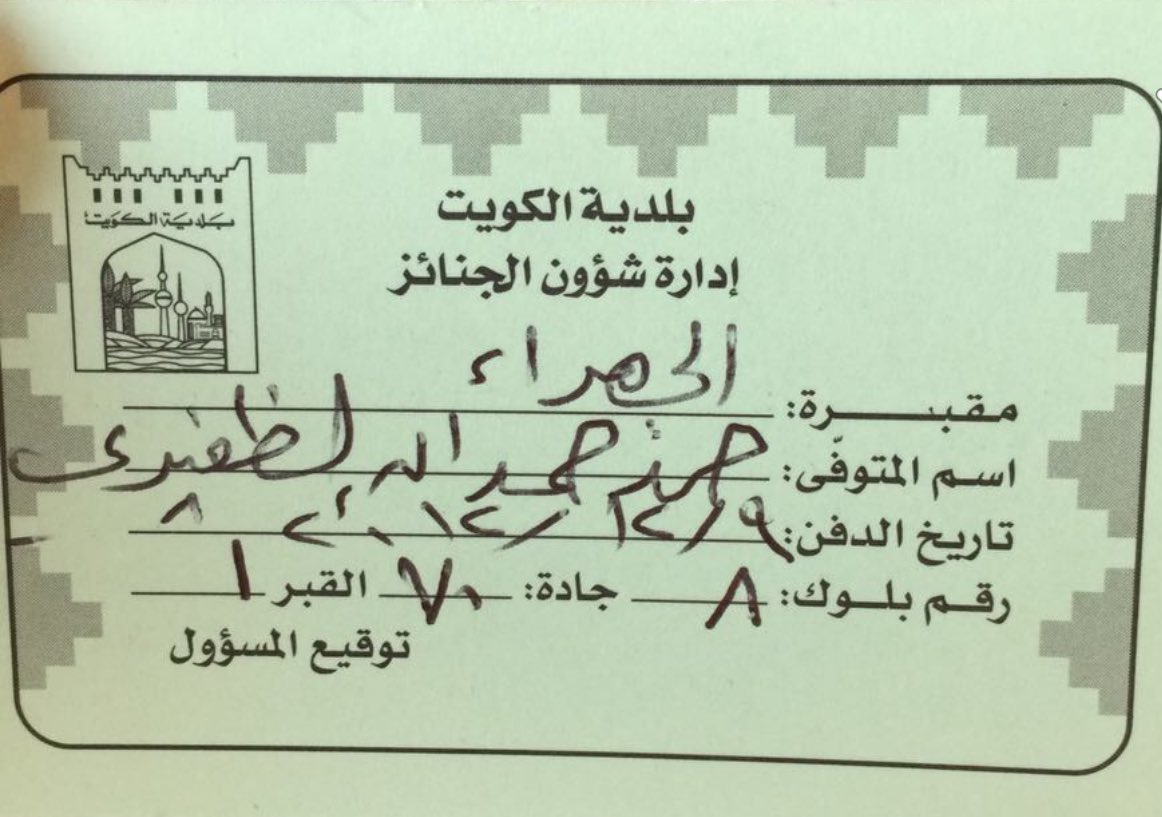 بلدية الكويت
بلدية الكويت
إدارة شؤون الجنائز
مقبرة: الجهراء
اسم المتوفّى: حمد الظفيري
تاريخ الدفن: ٩/١٢/١٢
رقم بلوك: ٨ جادة: ٧٠ القبر ١
توقيع المسؤول